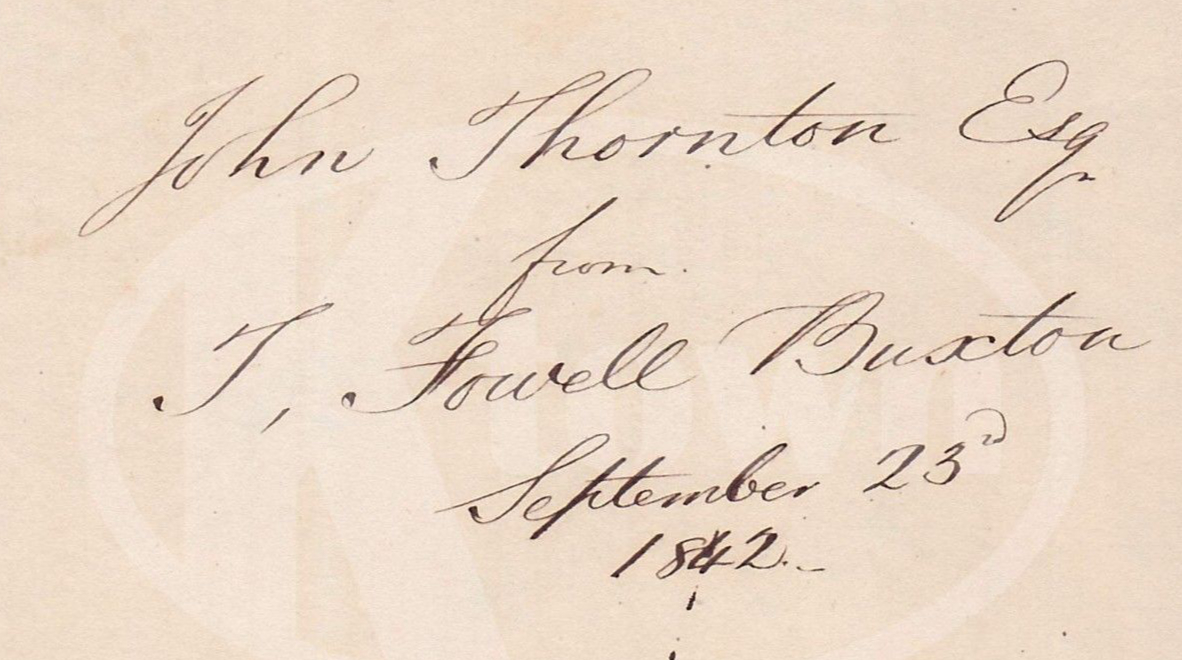 John Thornton Esq
from
T, Fowell Buxton
September 23d
1842.-